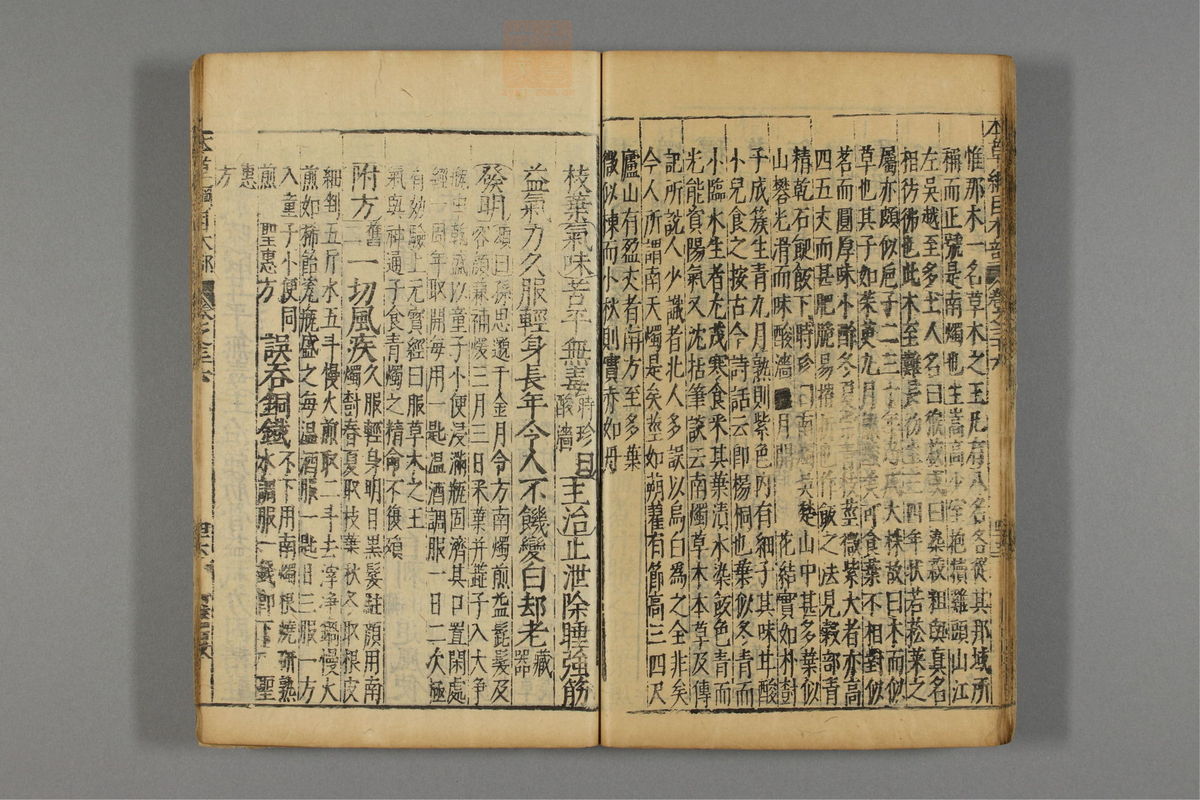 惟那木一名草木之王凡有八名各從其邦域所
稱而正號是南燭也生嵩高少室抱犢雞頭山江
左吳越至多土人名曰猴菽或曰染菽粗與真名
相彷彿也此木至難長初生三四年狀若菘菜之
屬亦頗似巵子二三十年乃成大株故曰木而似
草也其子如茱萸九月熟酸美可食葉不相對似
茗而圓厚味小酢冬夏常青枝莖微紫大者亦高
四五丈而甚肥脆易摧折也作飯之法見穀部青
精乾石䭀飯下時珍曰南燭吳楚山中甚多葉似
山礬光滑而味酸濇七月開小白花結實如朴樹
子成簇生青九月熟則紫色內有細子其味甘酸
小兒食之按古今詩話云即楊桐也葉似冬青而
小臨水生者尤茂寒食采其葉漬水染飯色青而
光能資陽氣又沈括筆談云南燭草木本草及傳
記所說人少識者北人多誤以烏臼為之全非矣
今人所謂南天燭是矣莖如蒴藋有節高三四尺
廬山有盈丈者南方至多葉
微似楝而小秋則實赤如丹
枝葉氣味苦平無毒時珍曰酸濇主治止泄除睡強筋
益氣力久服輕身長年令人不饑變白却老藏器
發明頌曰孫思邈千金月令方南燭煎益髭髮及
容顏兼補煖三月三日采葉并蕋子入大淨
瓶中乾盛以童子小便浸滿瓶固濟其口置閑處
經一周年取開每用一匙溫酒調服一日二次極
有効驗上元寶經曰服草木之王
氣與神通子食青燭之精命不復殞
附方舊二一切風疾久服輕身明目黑髮駐顏用南
燭樹春夏取枝葉秋冬取根皮
細剉五斤水五斗慢火煎取二斗去滓淨鍋慢火
煎如稀飴瓷瓶盛之每溫酒服一匙日三服一方
入童子小便同
煎 聖惠方 誤吞銅鐵不下用南燭根燒研熟
水調服一錢即下 聖
惠
方
本草綱目木部 卷之三十六
本草綱目木部 卷之三六